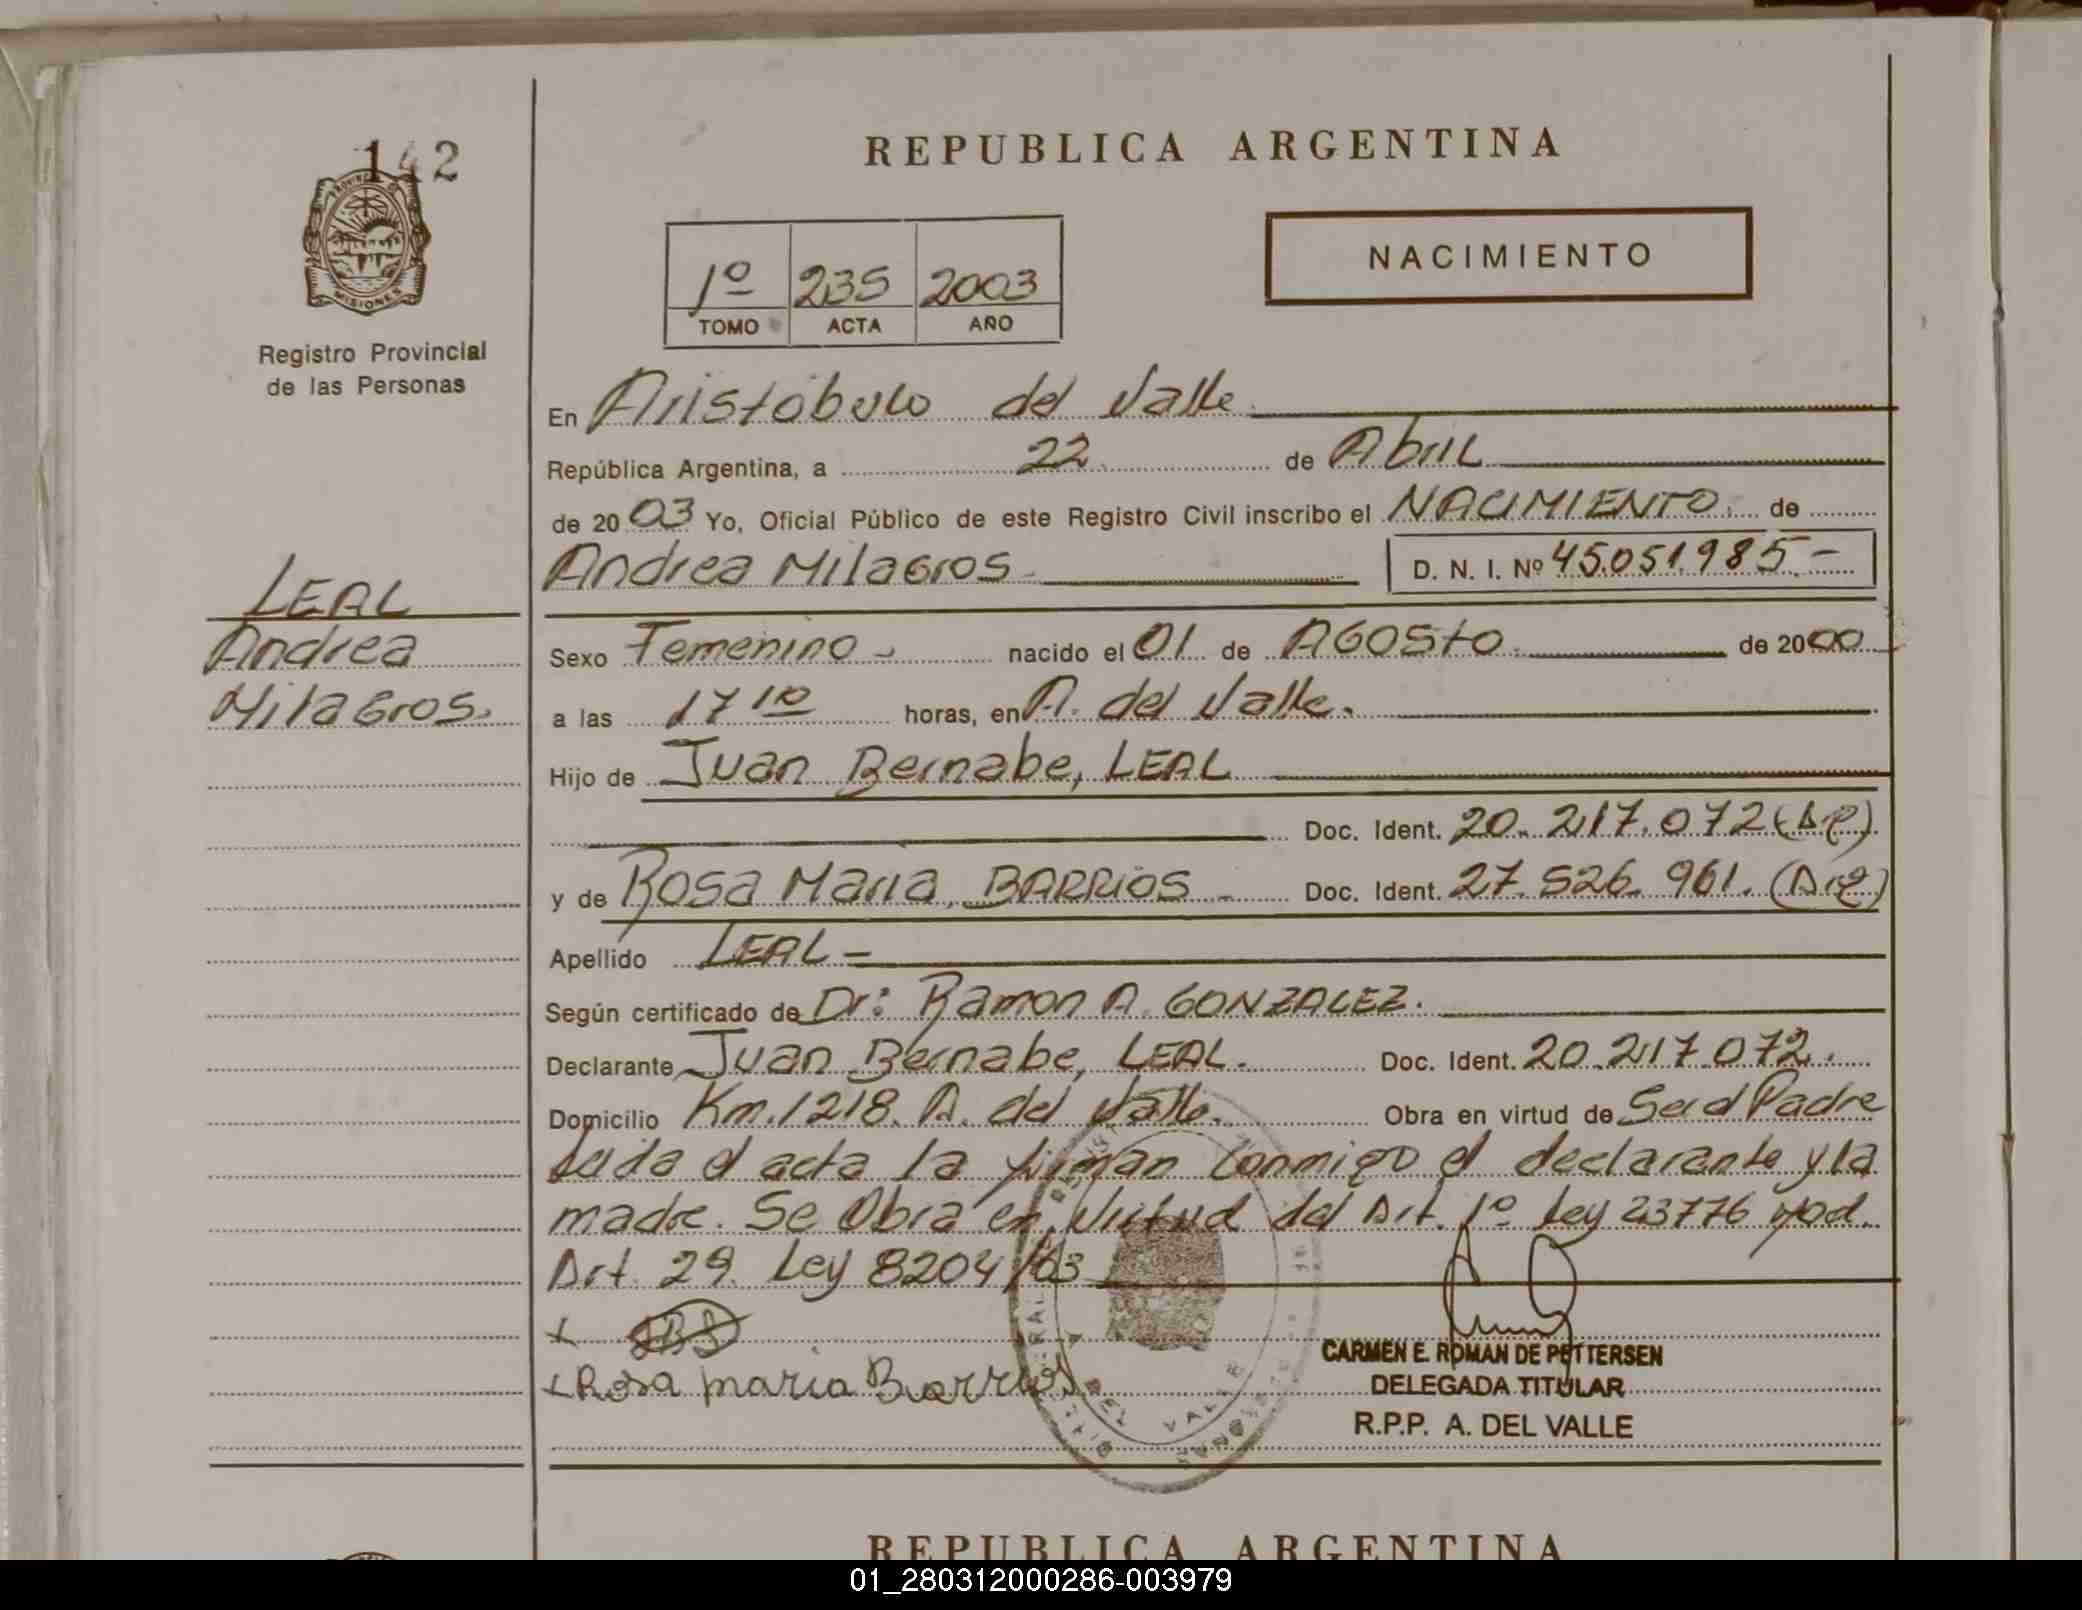 142
PROVINCIA DE
MISIONES
Registro Provincial
de las Personas
REPUBLICA ARGENTINA
1º 235 2003
TOMO ACTA AÑO
NACIMIENTO
En Aristóbulo del Valle
República Argentina, a 22 de Abril
de 2003 Yo, Oficial Público de este Registro Civil inscribo el NACIMIENTO de
Andrea Milagros D. N. I. Nº 45.051.985.-
LEAL
Andrea
Milagros.
Sexo Femenino - nacido el 01 de AGOSTO de 2000
a las 17 10 horas, en A. del Valle.
Hijo de Juan Bernabe, LEAL
Doc. Ident. 20.217.072
y de Rosa Maria, BARRIOS - Doc. Ident. 27.526.961.
Apellido LEAL -
Según certificado de Dr: Ramon A. GONZALEZ.
Declarante Juan Bernabe, LEAL. Doc. Ident. 20.217.072.
Domicilio Km. 1218. A. del Valle. Obra en virtud de Ser el Padre
Leida el acta la firman conmigo el declarante y la
madre. Se Obra en Virtud del Art. 1º Ley 23776 mod.
Art. 29. Ley 8204/63
x
x Rosa maria Barrios
DEL VALLE
CARMEN E. ROMAN DE PETTERSEN
DELEGADA TITULAR
R.P.P. A. DEL VALLE
REPUBLICA ARGENTINA
01_280312000286-003979